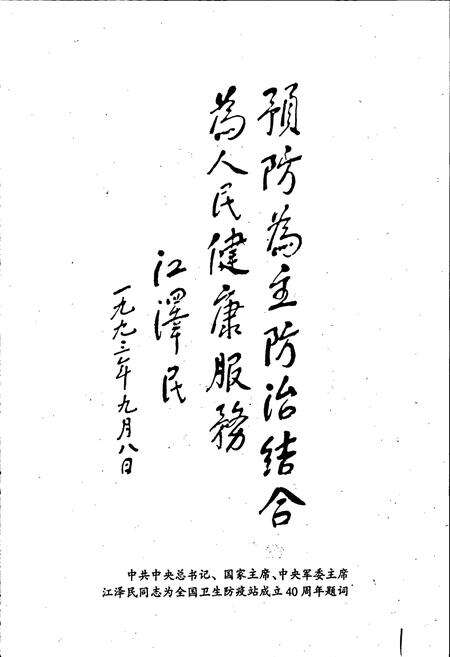 預防為主防治结合
為人民健康服務
江澤民
一九九三年九月八日
中共中央总书记、国家主席、中央军委主席
江泽民同志为全国卫生防疫站成立40周年题词